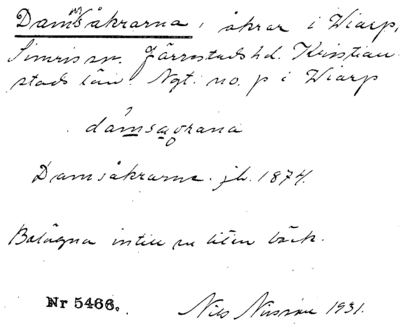 Damsåkrarna, åkrar i Wiarp,
Simris sn. Järrestads hd. Kristian-
stads län. Ngt. no. p i Wiarp
dämsaorana
Damsåkrarne. jb. 1874.
Belägna intill en liten bäck.
Nr 5466. Nils Nilsson 1931.